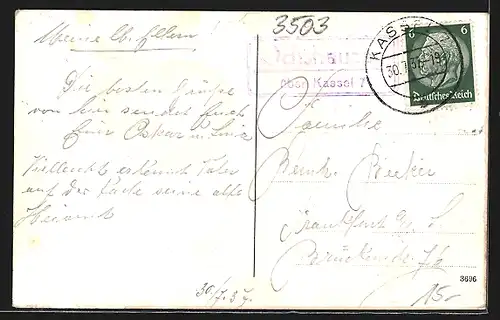 3503
Meine lb. Eltern!
Die besten Grüße
von hier sendet Euch
Euer Oskar u.
Vielleicht erkennt Vater
auf der Karte seine alte
Heimat
30./7.37.
über Kassel 7
KASSEL
30.7.37
6 6
Deutsches Reich
Familie
Becker
Frankfurt a/
3696
15.-